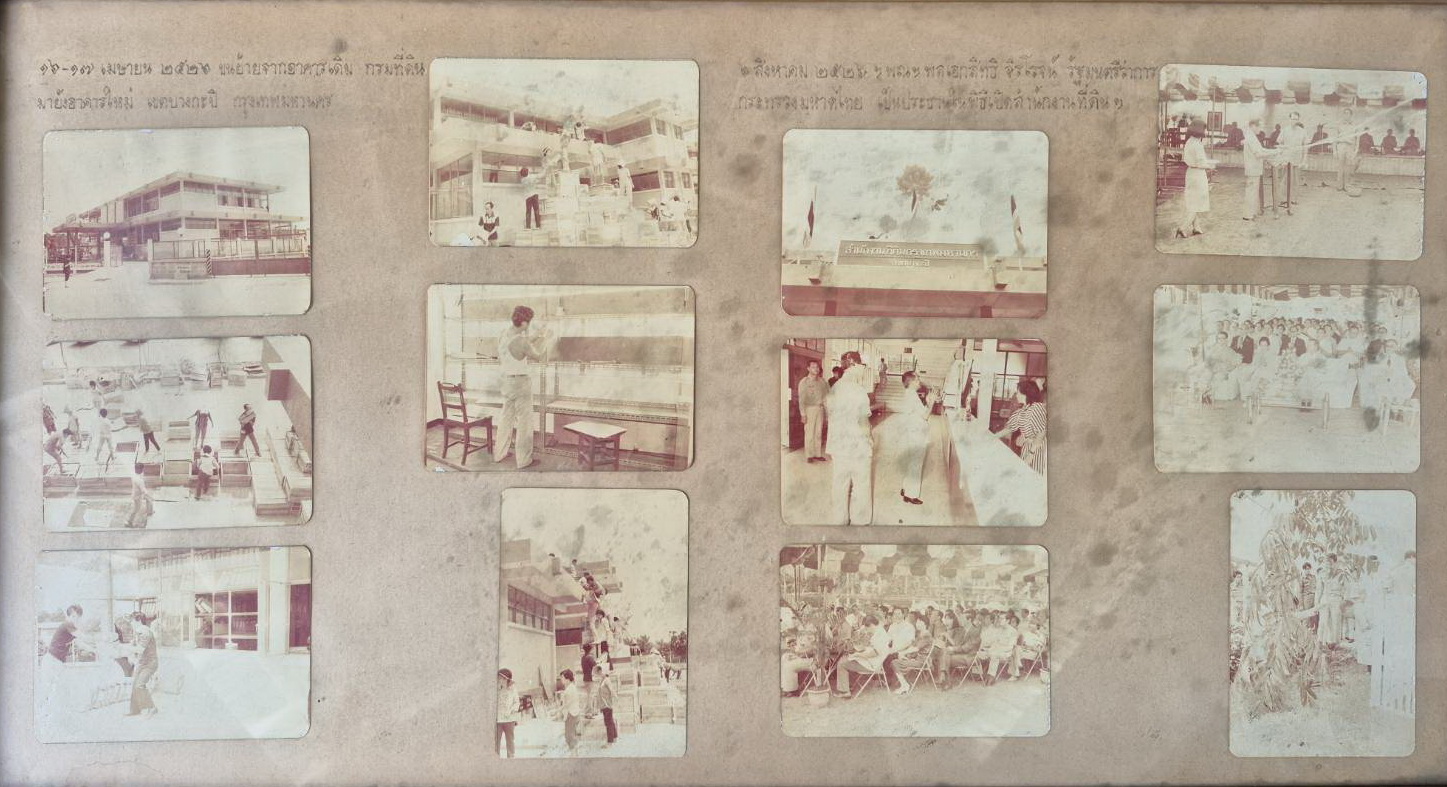 ๑๖-๑๗ เมษายน ๒๕๒๖ ขนย้ายจากอาคารเดิม กรมที่ดิน
มายังอาคารใหม่ เขตบางกะปิ กรุงเทพมหานคร
๒๕๒๖ ฯพณฯ พลเอกสิทธิ จิรโรจน์ รัฐมนตรีว่าการ
กระทรวงมหาดไทย เป็นประธานในพิธีเปิดสำนักงานที่ดิน
สำนักงานที่ดินกรุงเทพมหานคร